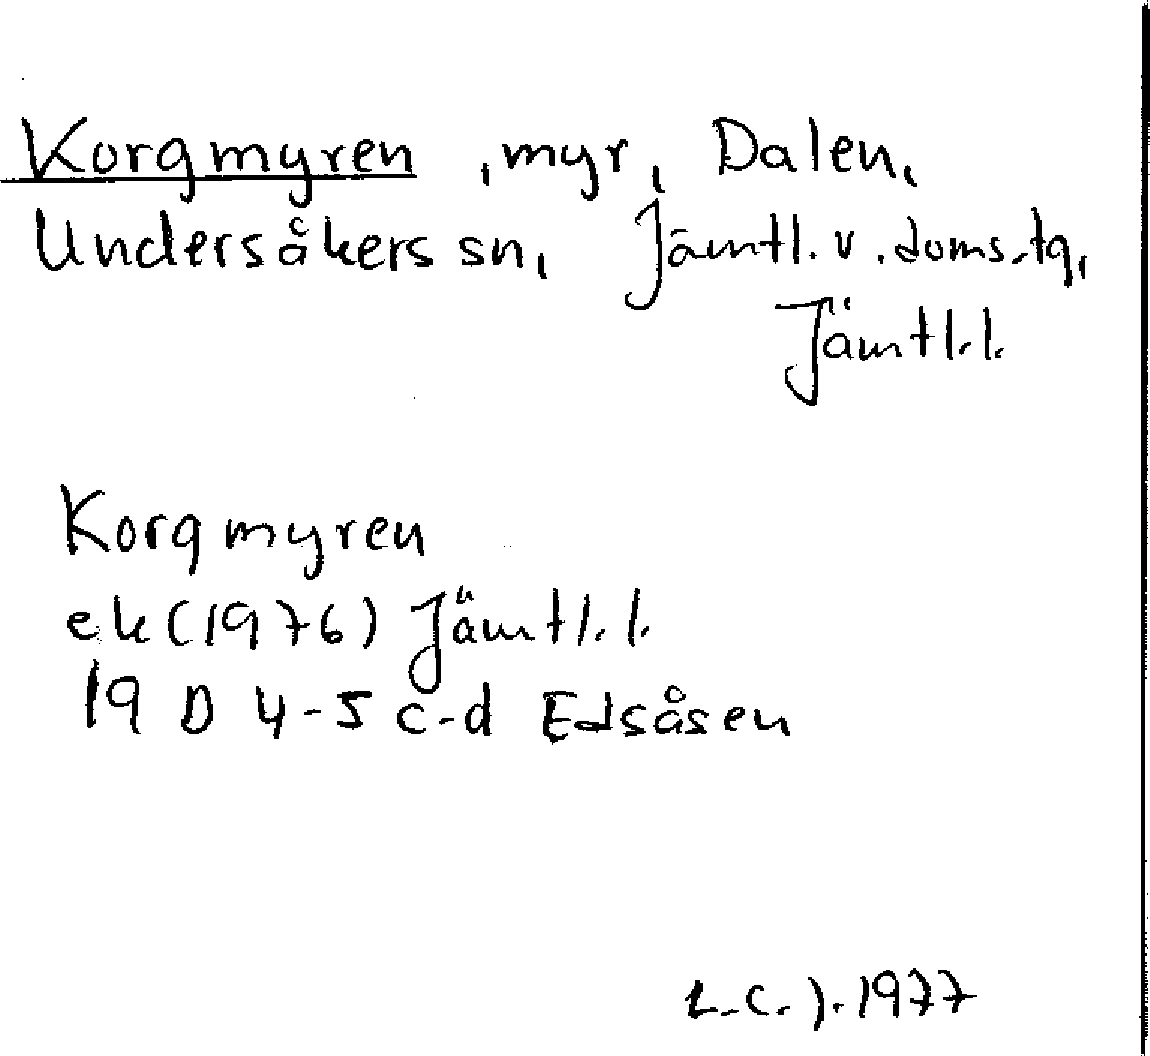 Korgmyren, myr, Dalen,
Undersåkers sn, Jämtl. v. doms.tg,
Jämtl.l.
Korgmyren
ek (1976) Jämtl.l.
19 D 4-5 c-d Edsåsen
L.C.J. 1977